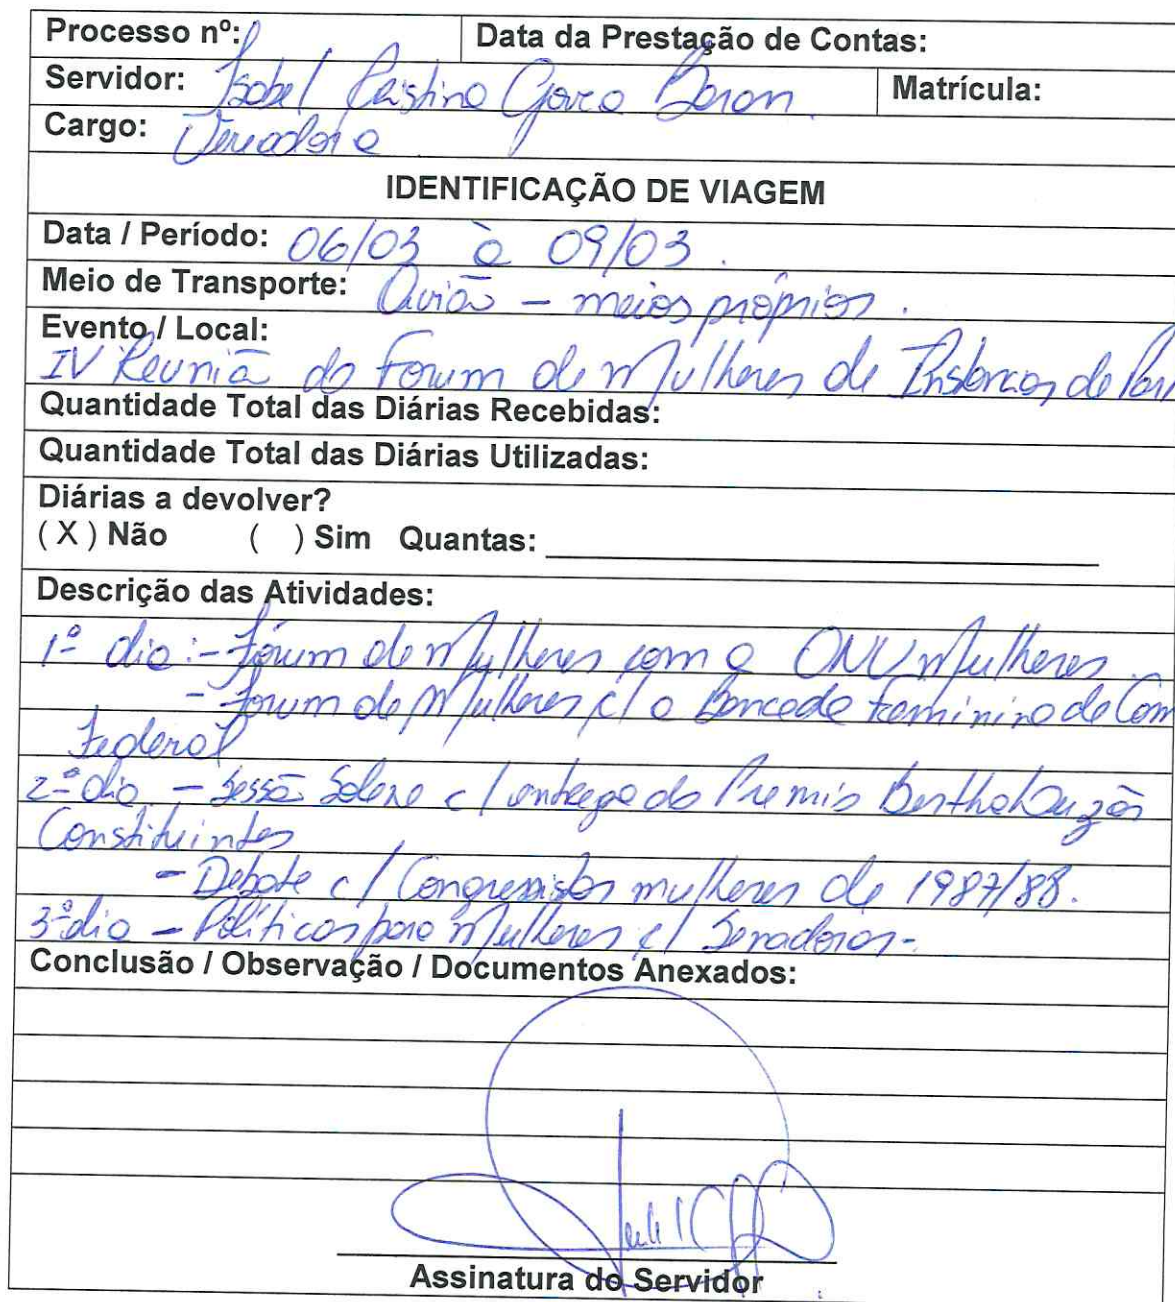 Processo nº: Data da Prestação de Contas:
Servidor: Isabel Cristina Baron Matrícula:
Cargo: Vereadora
IDENTIFICAÇÃO DE VIAGEM
Data / Período: 06/03 à 09/03.
Meio de Transporte: Avião - meios próprios.
Evento / Local:
IV Reunião do Forum de Mulheres de Instâncias de Par
Quantidade Total das Diárias Recebidas:
Quantidade Total das Diárias Utilizadas:
Diárias a devolver?
( X ) Não ( ) Sim Quantas:
Descrição das Atividades:
1º dia: - Fórum de Mulheres com a ONU Mulheres
- Forum de Mulheres c/ a Bancada Feminina da Cam
Federal
2º dia - Sessão Solene c/ entrega do Premio Bertha às
Constituintes
- Debate c/ Congressistas mulheres de 1987/88.
3º dia - Políticas para Mulheres c/ Senadoras-
Conclusão / Observação / Documentos Anexados:
Assinatura do Servidor